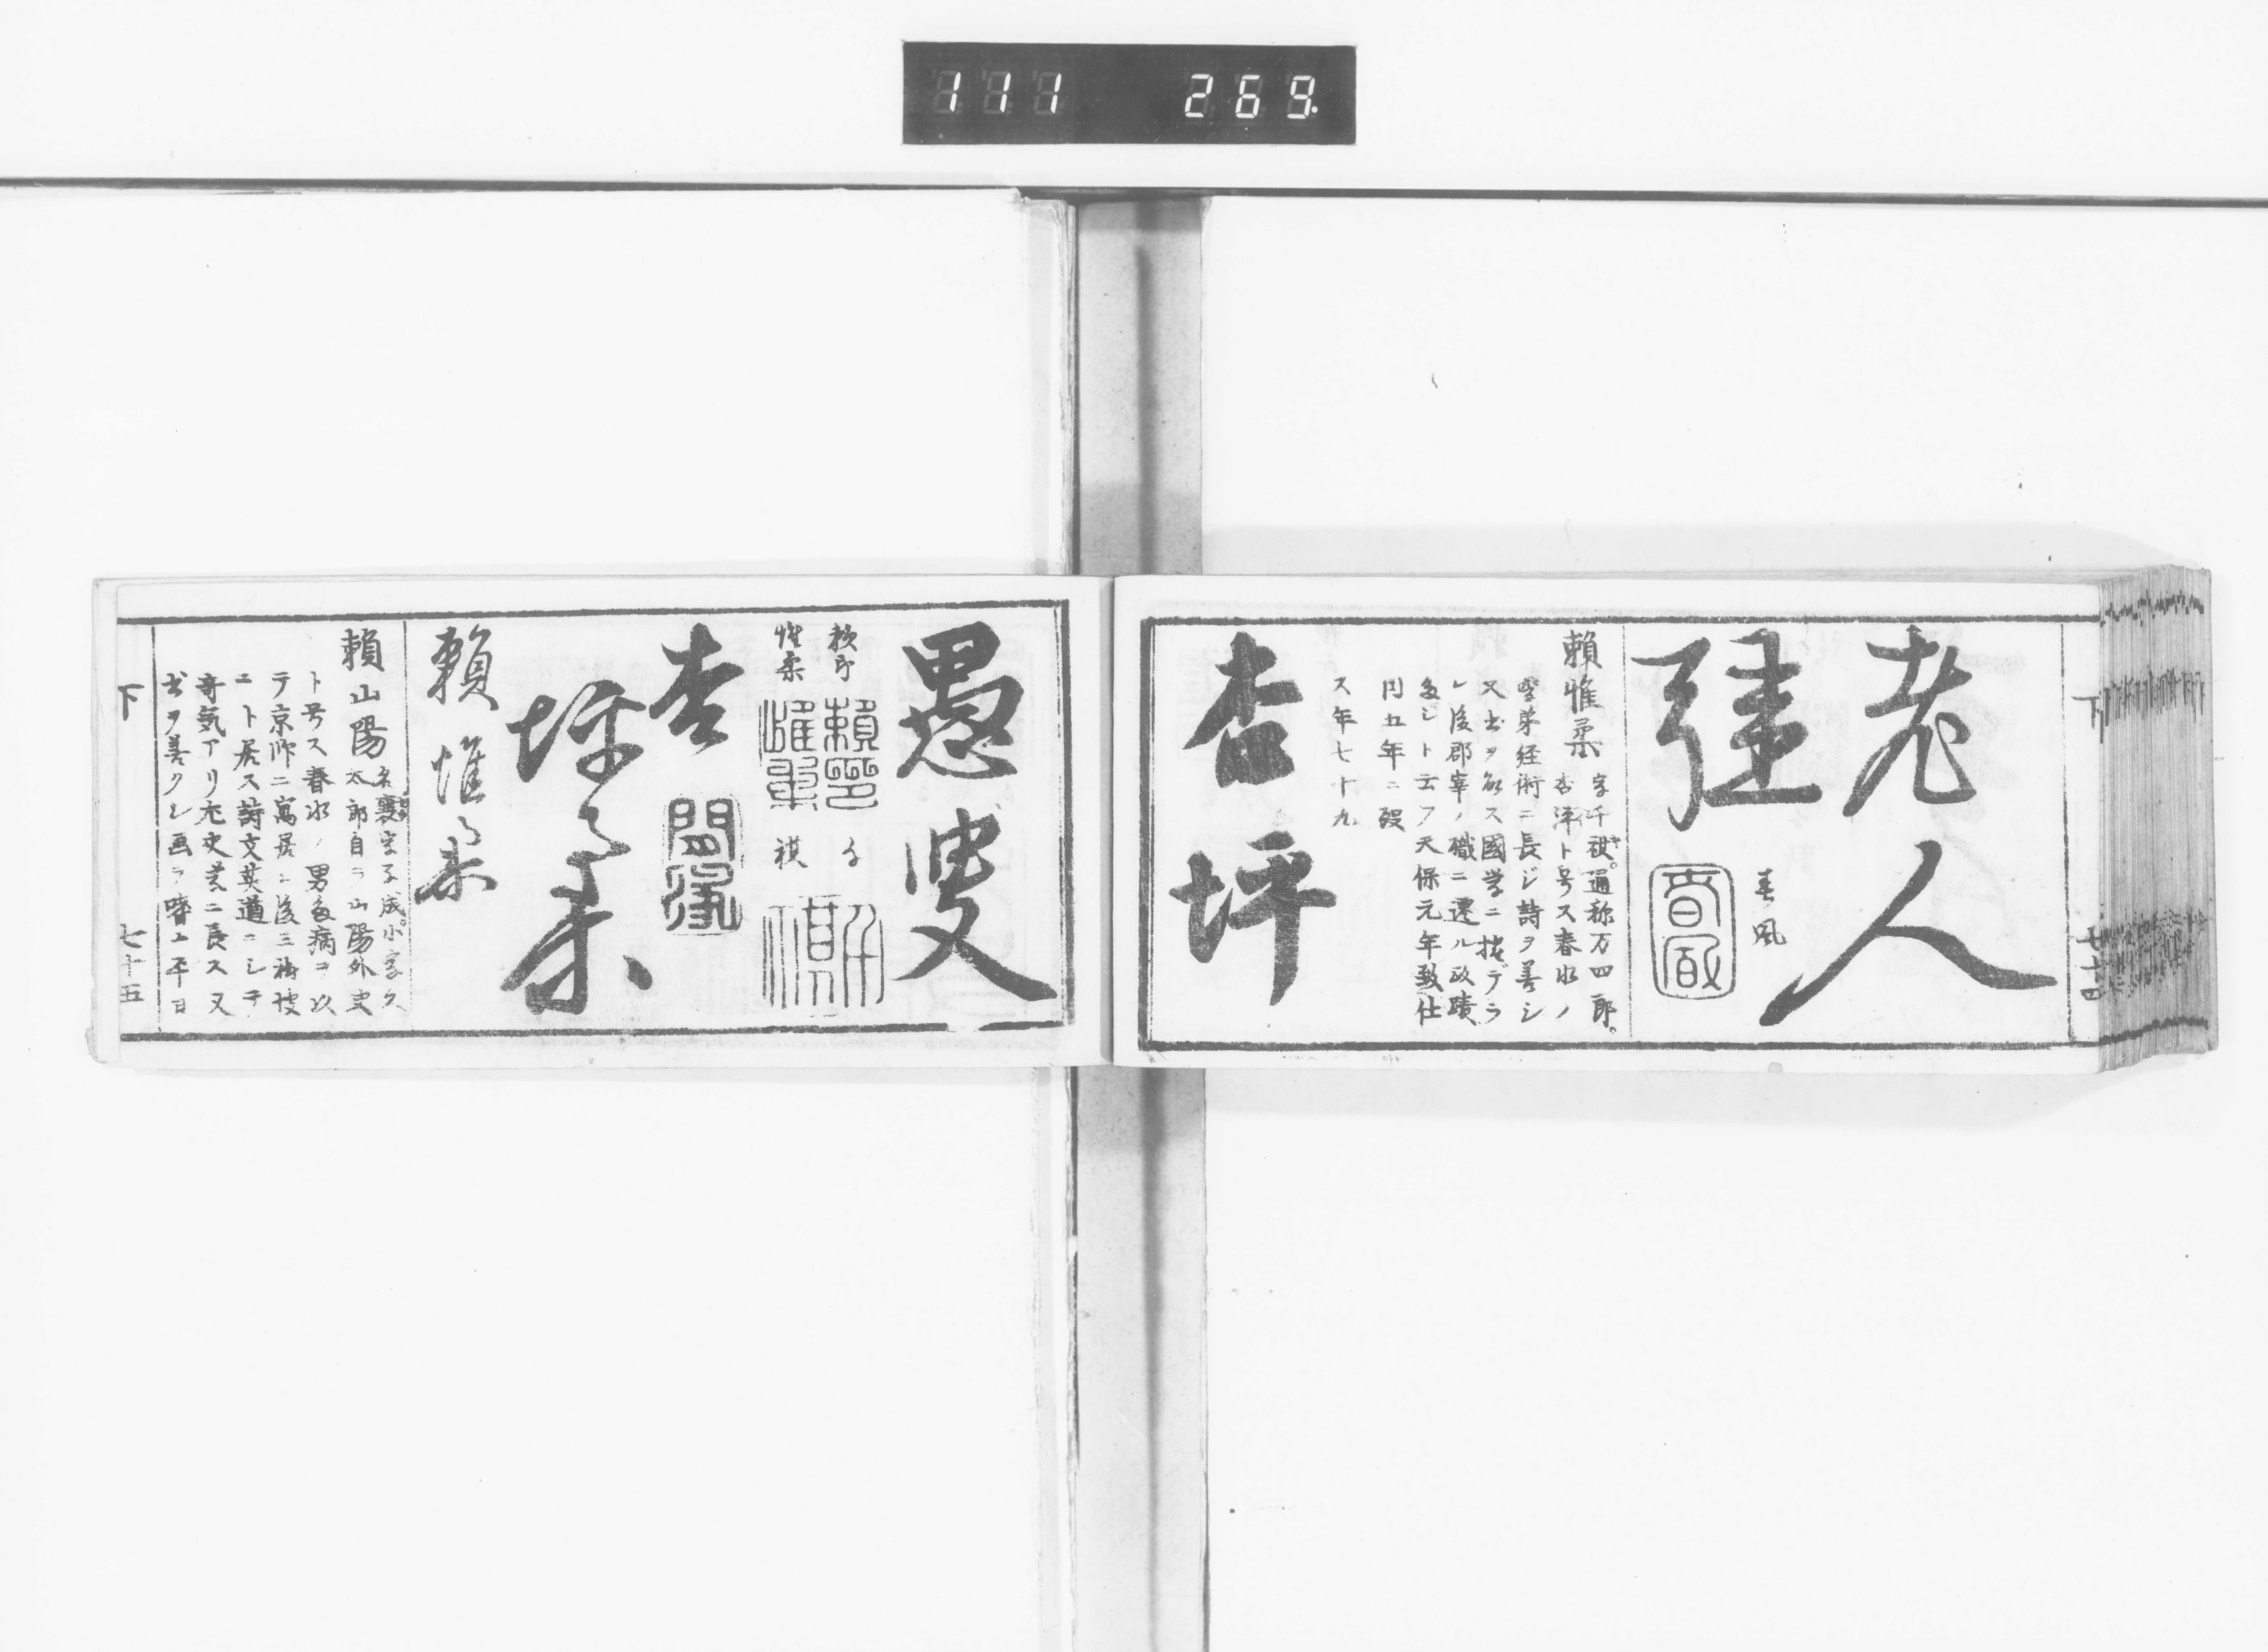 111 269.
老人
彊
春風
下
七十四
賴惟柔
字千祺。通称万四郎。
杏坪ト号ス春水ノ
季弟経術ニ長ジ詩ヲ善シ
又書ヲ能ス國学ニ抜デラ
レ後郡宰ノ職ニ遷ル政蹟
多シト云フ天保元年致仕
同五年ニ殁
ス年七十九
杏坪
愚叟
賴印
惟柔
千
祺
杏
坪柔
賴惟柔
賴山陽
名襄字子成。小字久
太郎自ラ山陽外史
ト号ス春水ノ男多病ヲ以
テ京師ニ寓居シ後三樹坡
ニト居ス詩文英遒ニシテ
奇気アリ尤史芸ニ長ス又
書ヲ善クシ画ヲ嗜ム平日
下
七十五